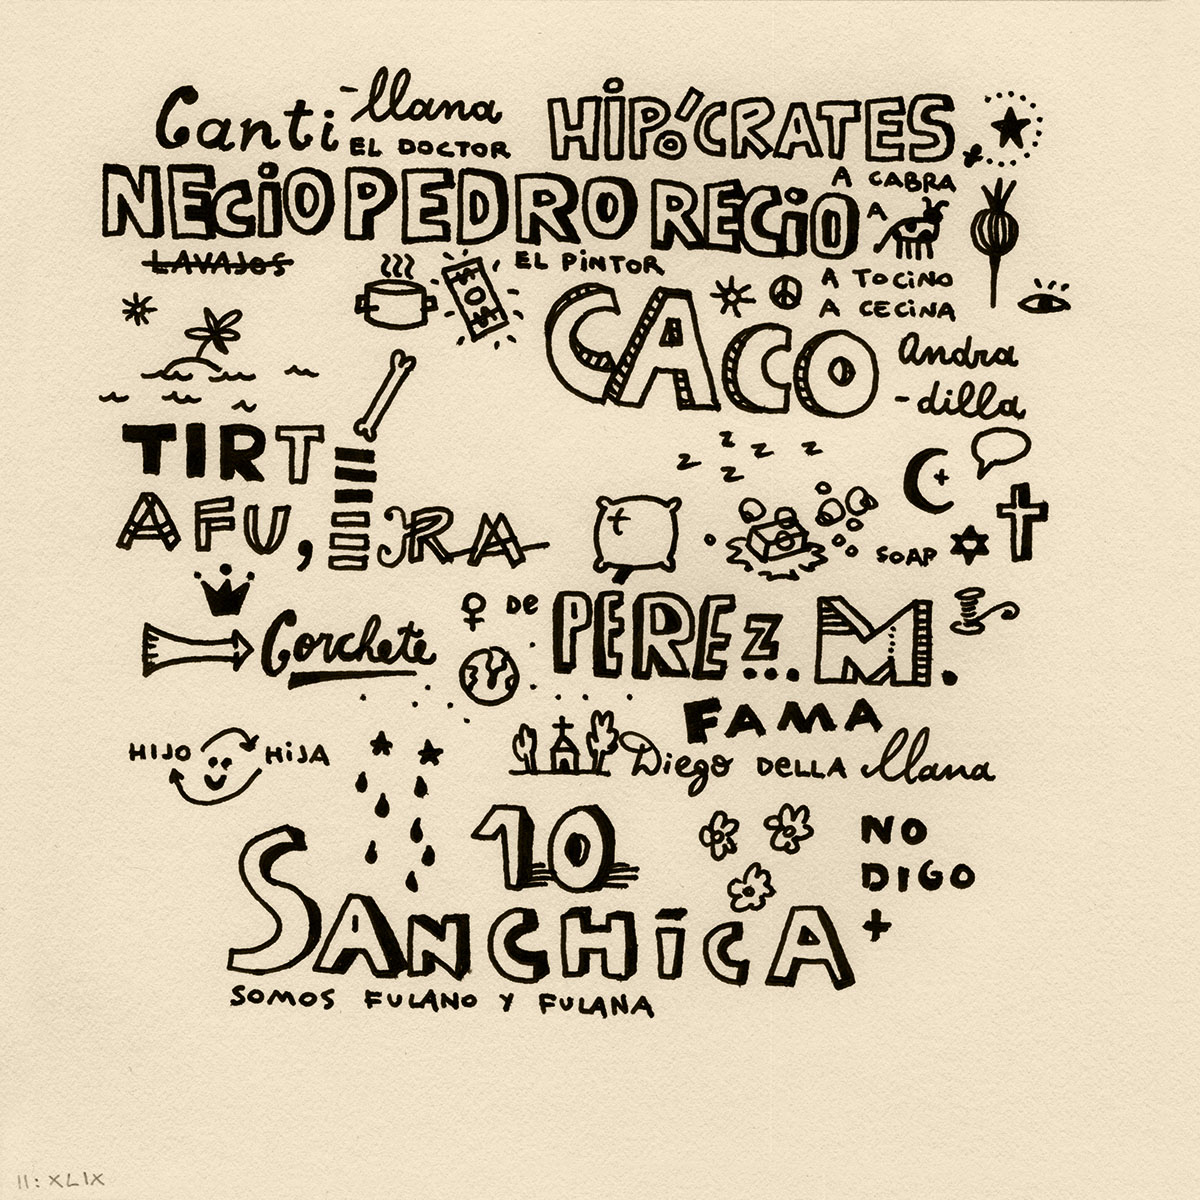 Canti-llana
EL DOCTOR
HIPÓCRATES
NECIO PEDRO RECIO
A CABRA
A
LAVAJOS
EL PINTOR
A TOCINO
A CECINA
CACO
Andra
-dilla
TIRTE
AFUERA,
z z z z z
SOAP
Corchete
DE PEREZ... M.
FAMA
HIJO HIJA
Diego DELLA llana
10
NO
DIGO
+
SANCHICA
SOMOS FULANO Y FULANA
II: XLIX